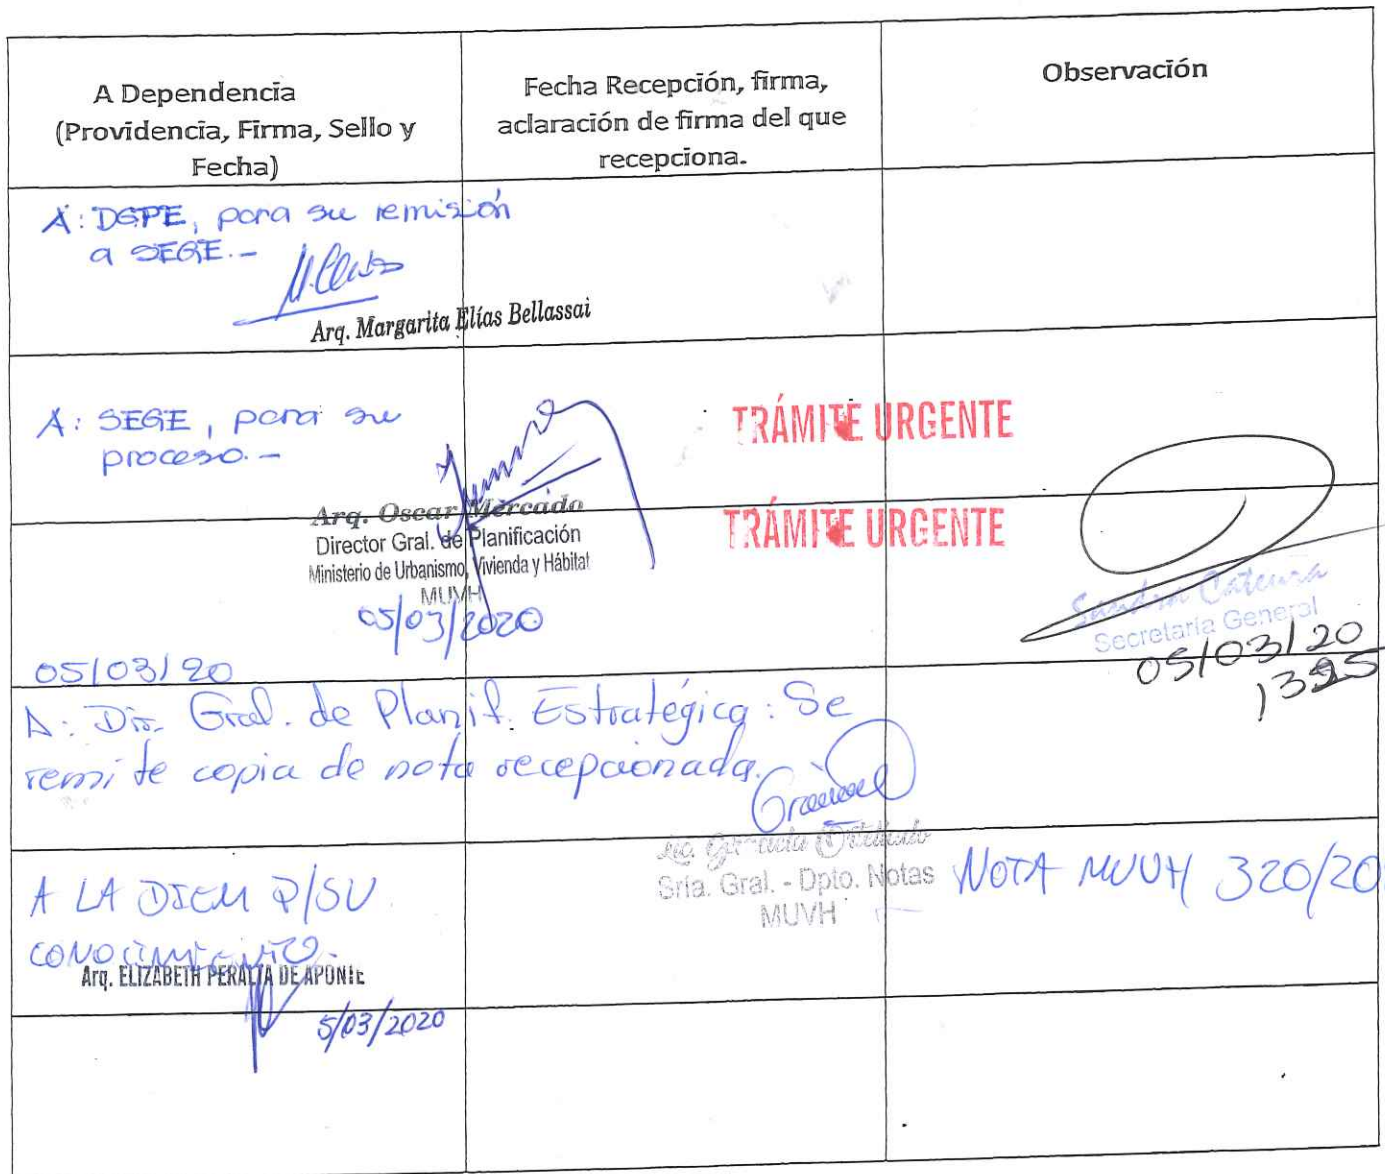 A Dependencia
(Providencia, Firma, Sello y
Fecha)
Fecha Recepción, firma,
aclaración de firma del que
recepciona.
Observación
A: DGPE, para su remisión
a SEGE.-
Arq. Margarita Elías Bellassai
A: SEGE, para su
proceso.-
Arq. Oscar Mercado
Director Gral. de Planificación
Ministerio de Urbanismo, Vivienda y Hábitat
MUVH
05/03/2020
TRÁMITE URGENTE
TRÁMITE URGENTE
Sandra Cateura
Secretaría General
05/03/20
1395
05/03/20
A: Dir. Gral. de Planif. Estratégica: Se
remite copia de nota recepcionada.
Sría. Gral. - Dpto. Notas
MUVH
NOTA MUVH 320/20
A LA DICM P/SU
CONOCIMIENTO.
Arq. ELIZABETH PERALTA DE APONTE
5/03/2020